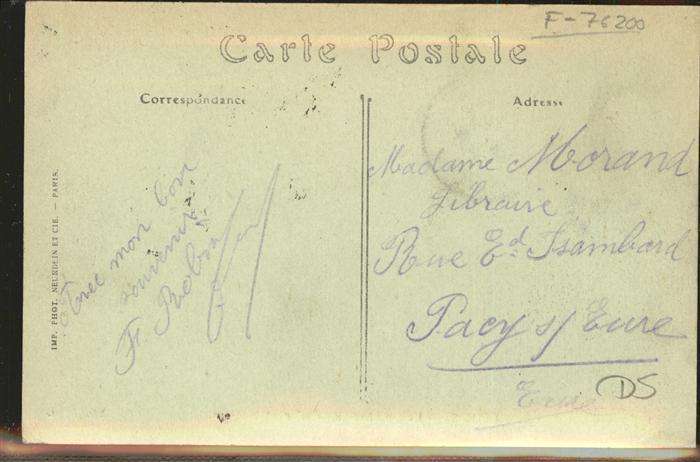 F-76200
Carte Postale
Correspondance
Adresse
Avec mon bon
souvenir
F. Robin
Madame Morand
Libraire
Rue Ed. Isambard
Pacy s/ Eure
Eure
DS
IMP. PHOT. NEURDEIN ET CIE. — PARIS.